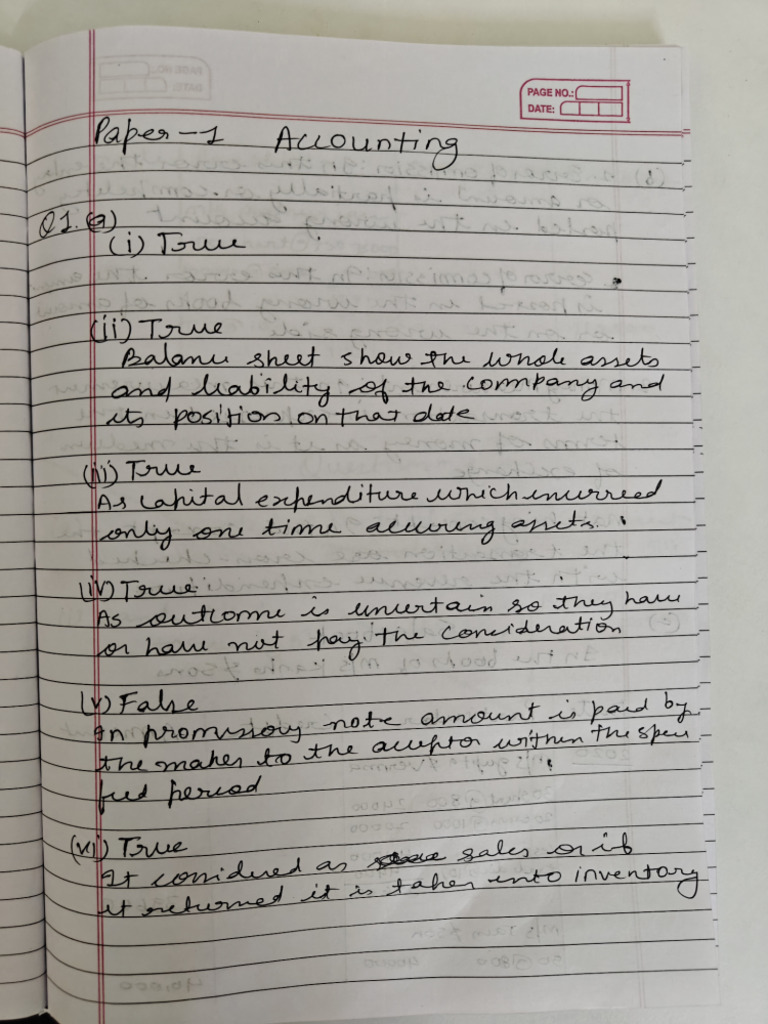 PAGE NO.:
DATE:
Paper-1 Accounting
Q1. (a)
(i) True
(ii) True
Balance sheet show the whole assets
and liability of the company and
its position on that date
(iii) True
As capital expenditure which incurred
only one time accuring assets.
(iv) True
As outcome is uncertain so they have
or have not pay the consideration
(v) False
In promissory note amount is paid by
the maker to the acceptor within the speci
fied period
(vi) True
It considered as sales or if
it returned it is taken into inventory